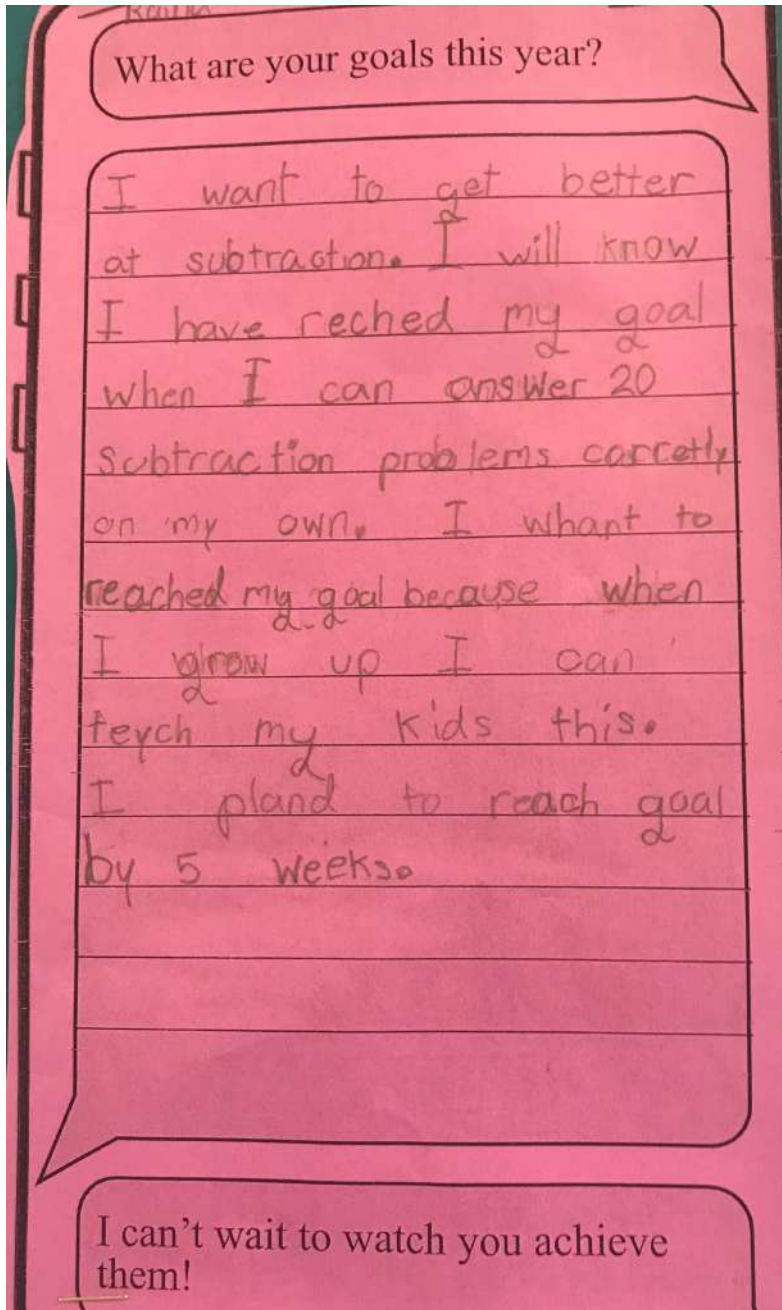 What are your goals this year?
I want to get better
at subtraction. I will know
I have reched my goal
when I can answer 20
subtraction problems corretly
on my own. I whant to
reached my goal because when
I grow up I can
teych my kids this.
I pland to reach goal
by 5 weeks.
I can't wait to watch you achieve
them!